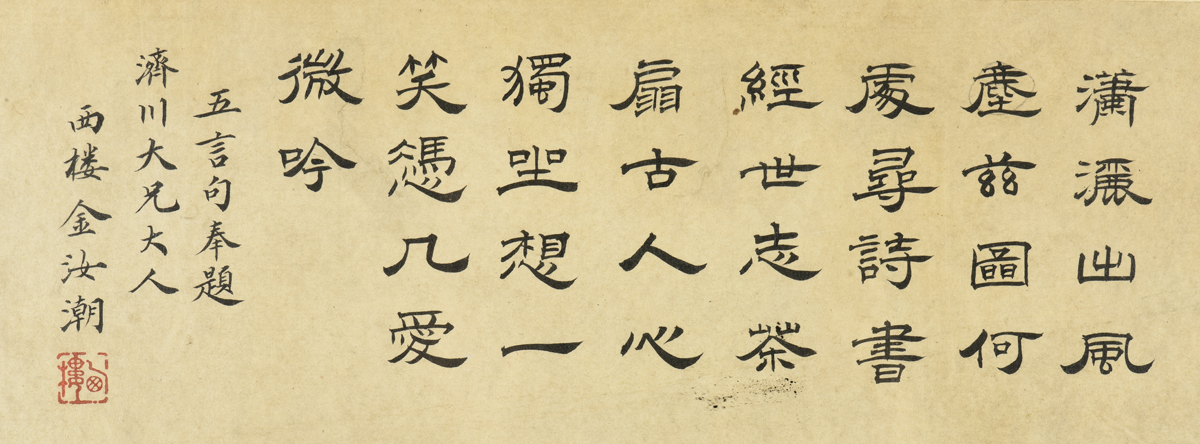 瀟灑出風
塵茲圖何
處尋詩書
經世志茶
扇古人心
獨坐想一
笑憑几愛
微吟
五言句奉題
濟川大兄大人
西楼金汝潮
西樓